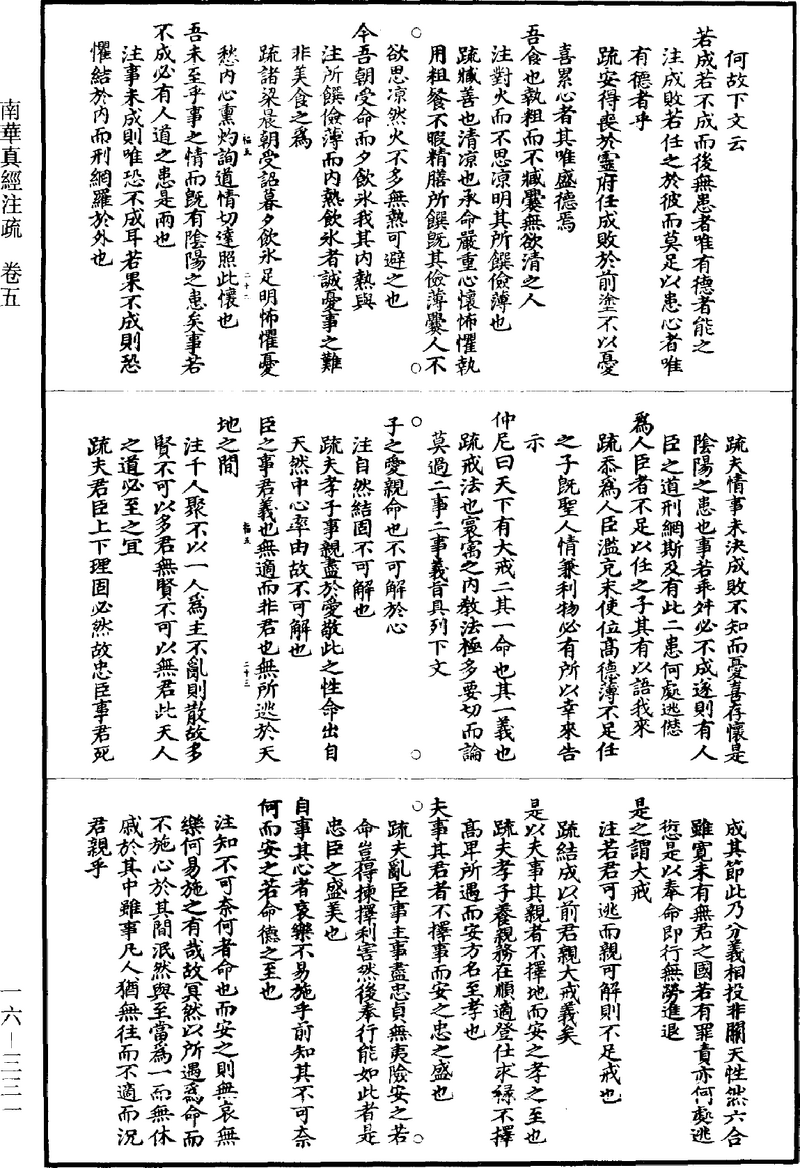 何故下文云
若成若不成而後無患者唯有德者能之
注成敗若任之於彼而莫足以患心者唯
有德者乎
疏安得喪於靈府任成敗於前塗不以憂
喜累心者其唯盛德焉
吾食也執粗而不臧爨無欲清之人
注對火而不思涼明其所饌儉薄也
疏臧善也清涼也承命嚴重心懷怖懼執
用粗餐不暇精膳所饌既其儉薄爨人不
欲思涼然火不多無熱可避之也
今吾朝受命而夕飲氷我其內熱與
注所饌儉薄而內熱飲氷者誠憂事之難
非美食之為
疏諸梁晨朝受詔暮夕飲氷足明怖懼憂
愁內心熏灼詢道情切達照此懷也
吾未至乎事之情而旣有陰陽之患矣事若
不成必有人道之患是兩也
注事未成則唯恐不成耳若果不成則恐
懼結於內而刑網羅於外也
疏夫情事未決成敗不知而憂喜存懷是
陰陽之患也事若乖舛必不成遂則有人
臣之道刑網斯及有此二患何處逃愆
爲人臣者不足以任之子其有以語我來
疏忝爲人臣濫充末使位高德薄不足任
之子旣聖人情兼利物必有所以幸來告
示
仲尼曰天下有大戒二其一命也其一義也
疏戒法也寰㝢之內教法極多要切而論
莫過二事二事義旨具列下文
子之愛親命也不可解於心
注自然結固不可解也
疏夫孝子事親盡於愛敬此之性命出自
天然中心率由故不可解也
臣之事君義也無適而非君也無所逃於天
地之間
注千人聚不以一人爲主不亂則散故多
賢不可以多君無賢不可以無君此天人
之道必至之宜
疏夫君臣上下理固必然故忠臣事君死
成其節此乃分義相投非關天性然六合
雖寬未有無君之國若有罪責亦何處逃
愆是以奉命即行無勞進退
是之謂大戒
注若君可逃而親可解則不足戒也
疏結成以前君親大戒義矣
是以夫事其親者不擇地而安之孝之至也
疏夫孝子養親務在順適登仕求祿不擇
高卑所遇而安方名至孝也
夫事其君者不擇事而安之忠之盛也
疏夫亂臣事主事盡忠貞無夷險安之若
命豈得揀擇利害然後奉行能如此者是
忠臣之盛美也
自事其心者哀樂不易施乎前知其不可奈
何而安之若命德之至也
注知不可奈何者命也而安之則無哀無
樂何易施之有哉故冥然以所遇爲命而
不施心於其間泯然與至當爲一而無休
戚於其中雖事凡人猶無往而不適而況
君親乎
南華真經注疏　卷五
一六－三三一